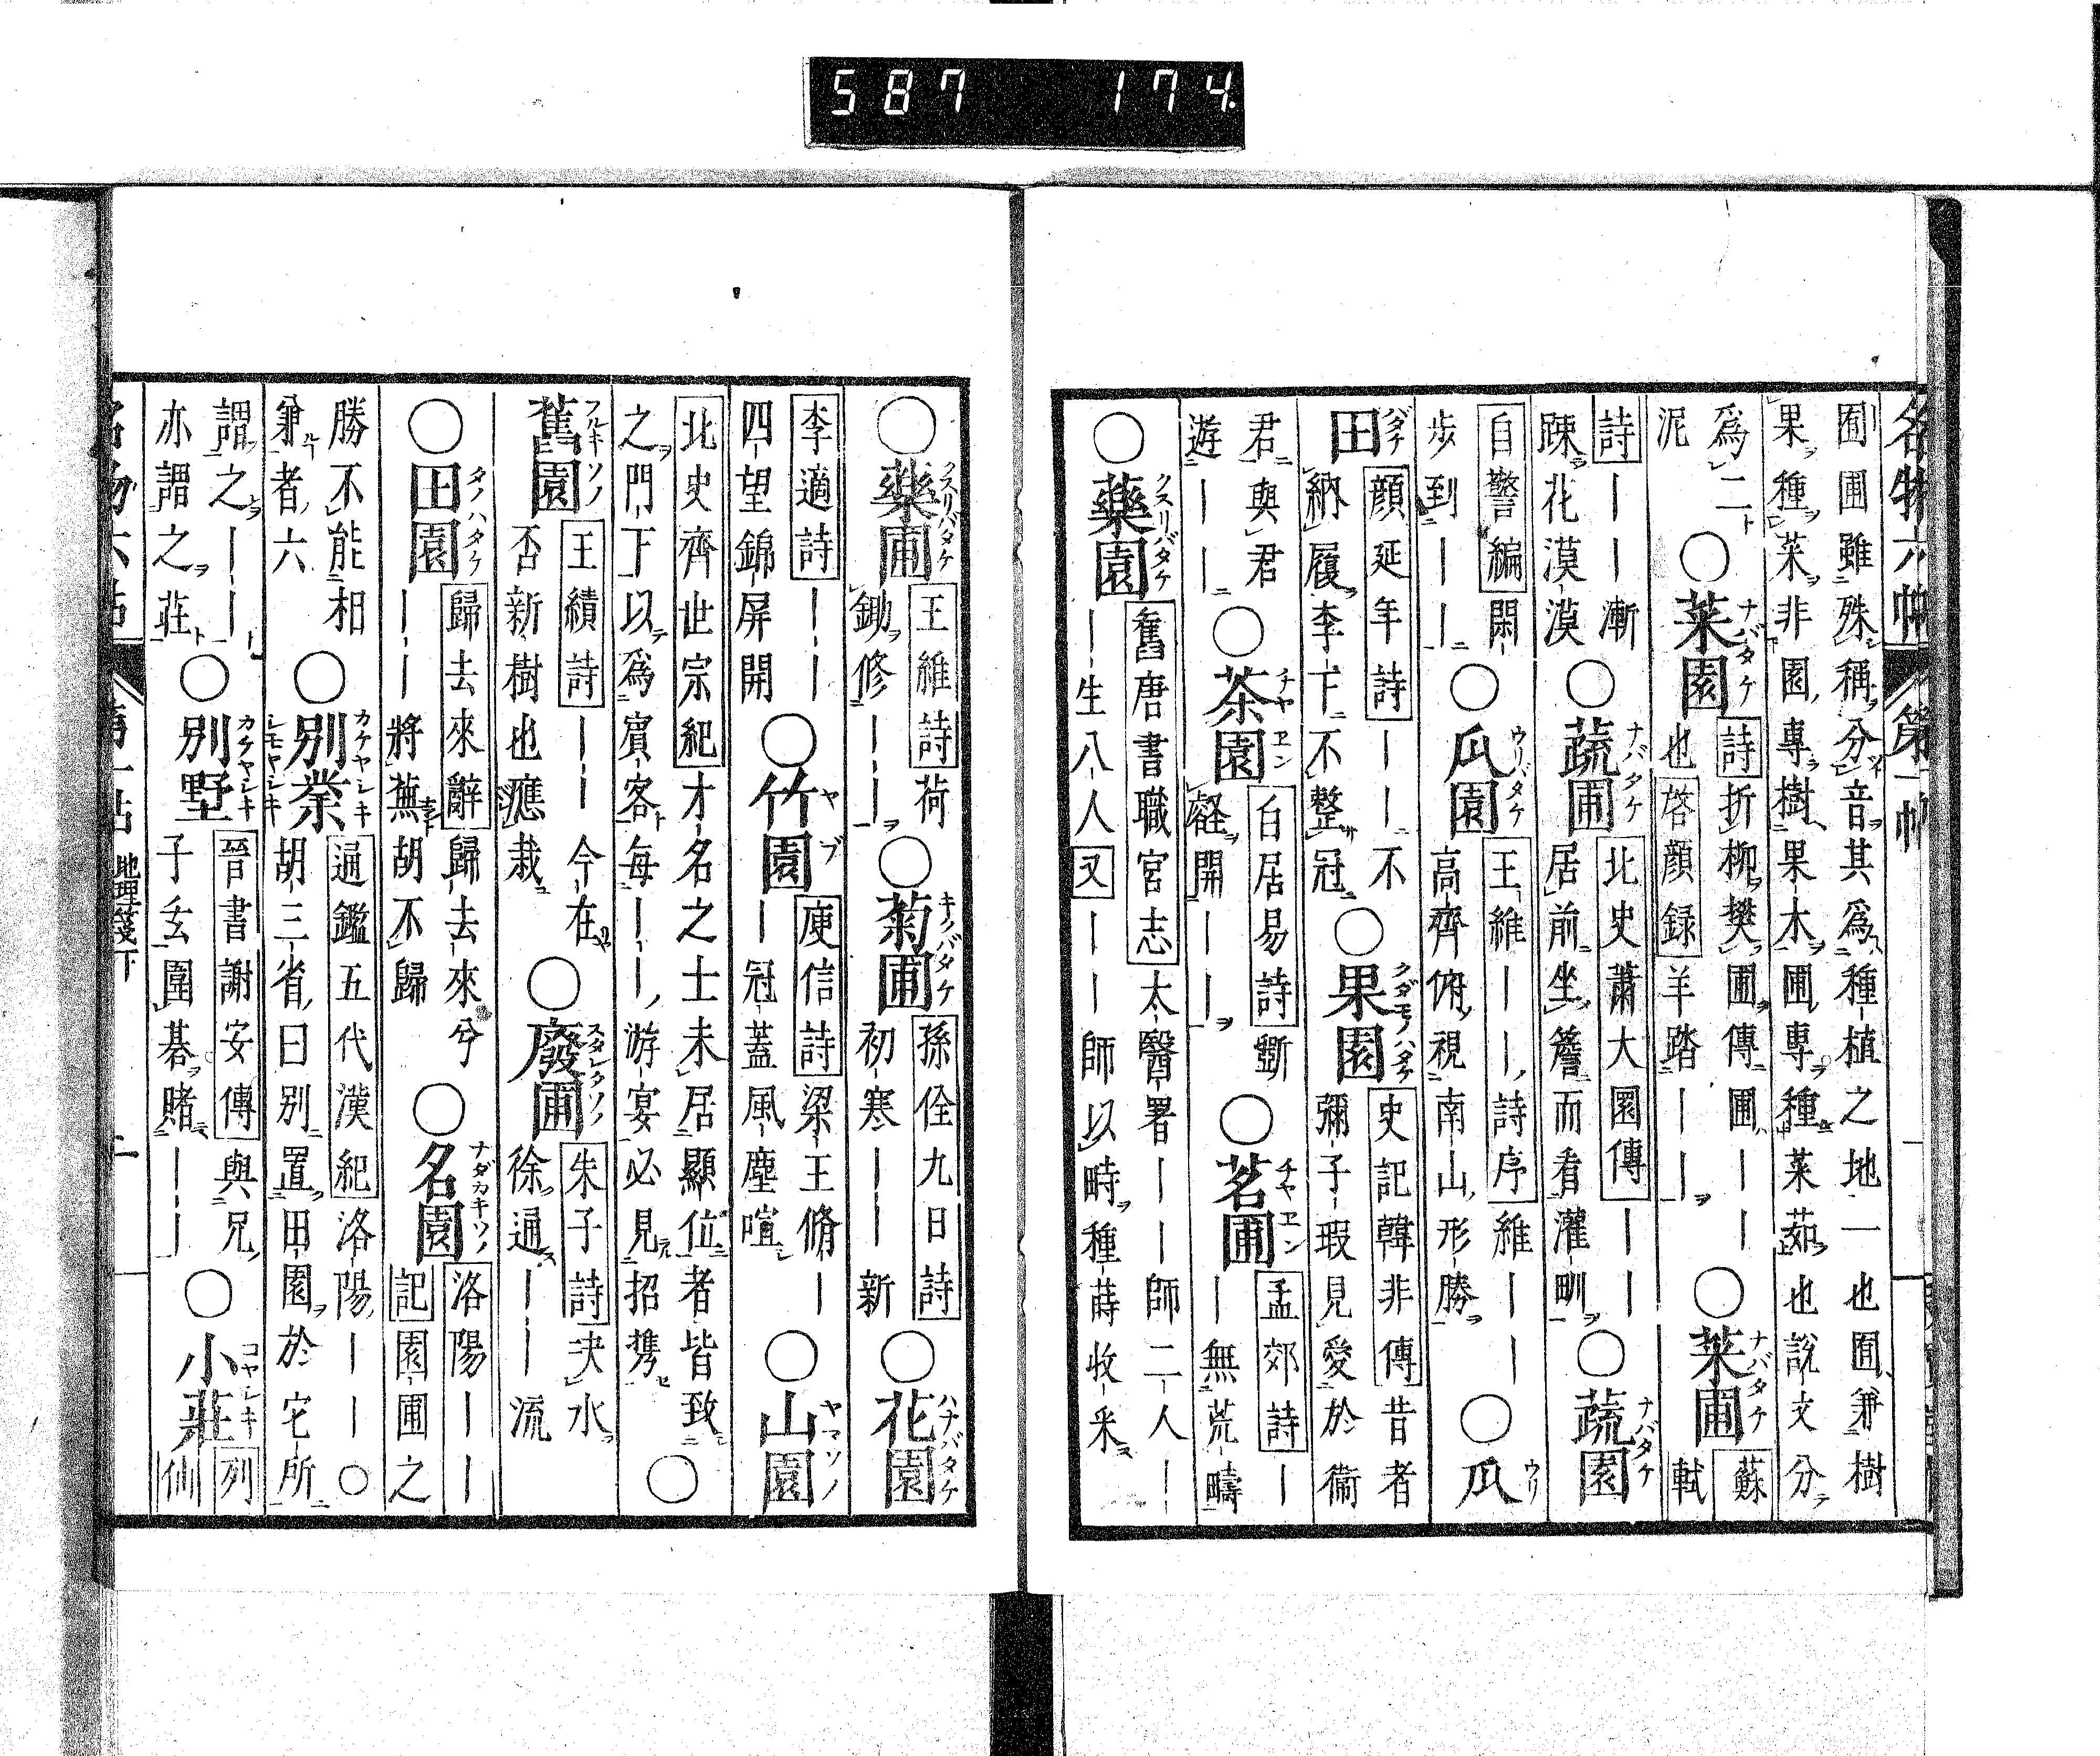 587 174
名物六帖 第一帖
囿圃雖殊稱分音其爲種植之地一也囿兼樹
果種菜非園專樹果木圃專種菜茹也說文分
爲二泥 ○菜園 ナバタケ 詩折柳樊圃傳圃——也 啓顔録羊踏—— ○菜圃 ナバタケ 蘇軾
詩——漸疎花漠漠 ○蔬圃 ナバタケ 北史蕭大圜傳——居前坐簷而看灌畎 ○蔬園 ナバタケ
自警編閑步到—— ○瓜園 ウリバタケ 王維——詩序維——高齊俯視南山形勝 ○瓜 ウリ
田 バタケ 顔延年詩——不納履李下不整冠 ○果園 クダモノハタケ 史記韓非傳昔者彌子瑕見愛於衞
君與君遊—— ○茶園 チヤヱン 白居易詩斸壑開—— ○茗圃 チヤヱン 孟郊詩——無荒疇
○藥園 クスリバタケ 舊唐書職官志太醫署——師二人——生八人又——師以時種蒔收采
○藥圃 クスリバタケ 王維詩荷鋤修—— ○菊圃 キクバタケ 孫佺九日詩初寒——新 ○花園 ハナバタケ
李適詩——四望錦屏開 ○竹園 ヤブ 庾信詩梁王脩—冠蓋風塵喧 ○山園 ヤマソノ
北史齊世宗紀才名之士未居顯位者皆致之門下以爲賓客每——游宴必見招攜 ○
舊園 フルキソノ 王績詩——今在否新樹也應栽 ○廢圃 スタレタソノ 朱子詩决水徐通——流
○田園 タノハタケ 歸去來辭歸去來兮——將蕪胡不歸 ○名園 ナダカキソノ 洛陽——記園圃之
勝不能相兼者六 ○別業 カケヤシキ シモヤシキ 通鑑五代漢紀洛陽——○胡三省曰別置田園於宅所
謂之——亦謂之莊 ○別墅 カケヤシキ 晉書謝安傳與兄子玄圍碁賭—— ○小莊 コヤシキ 列仙
名物六帖 第一帖 地理箋下